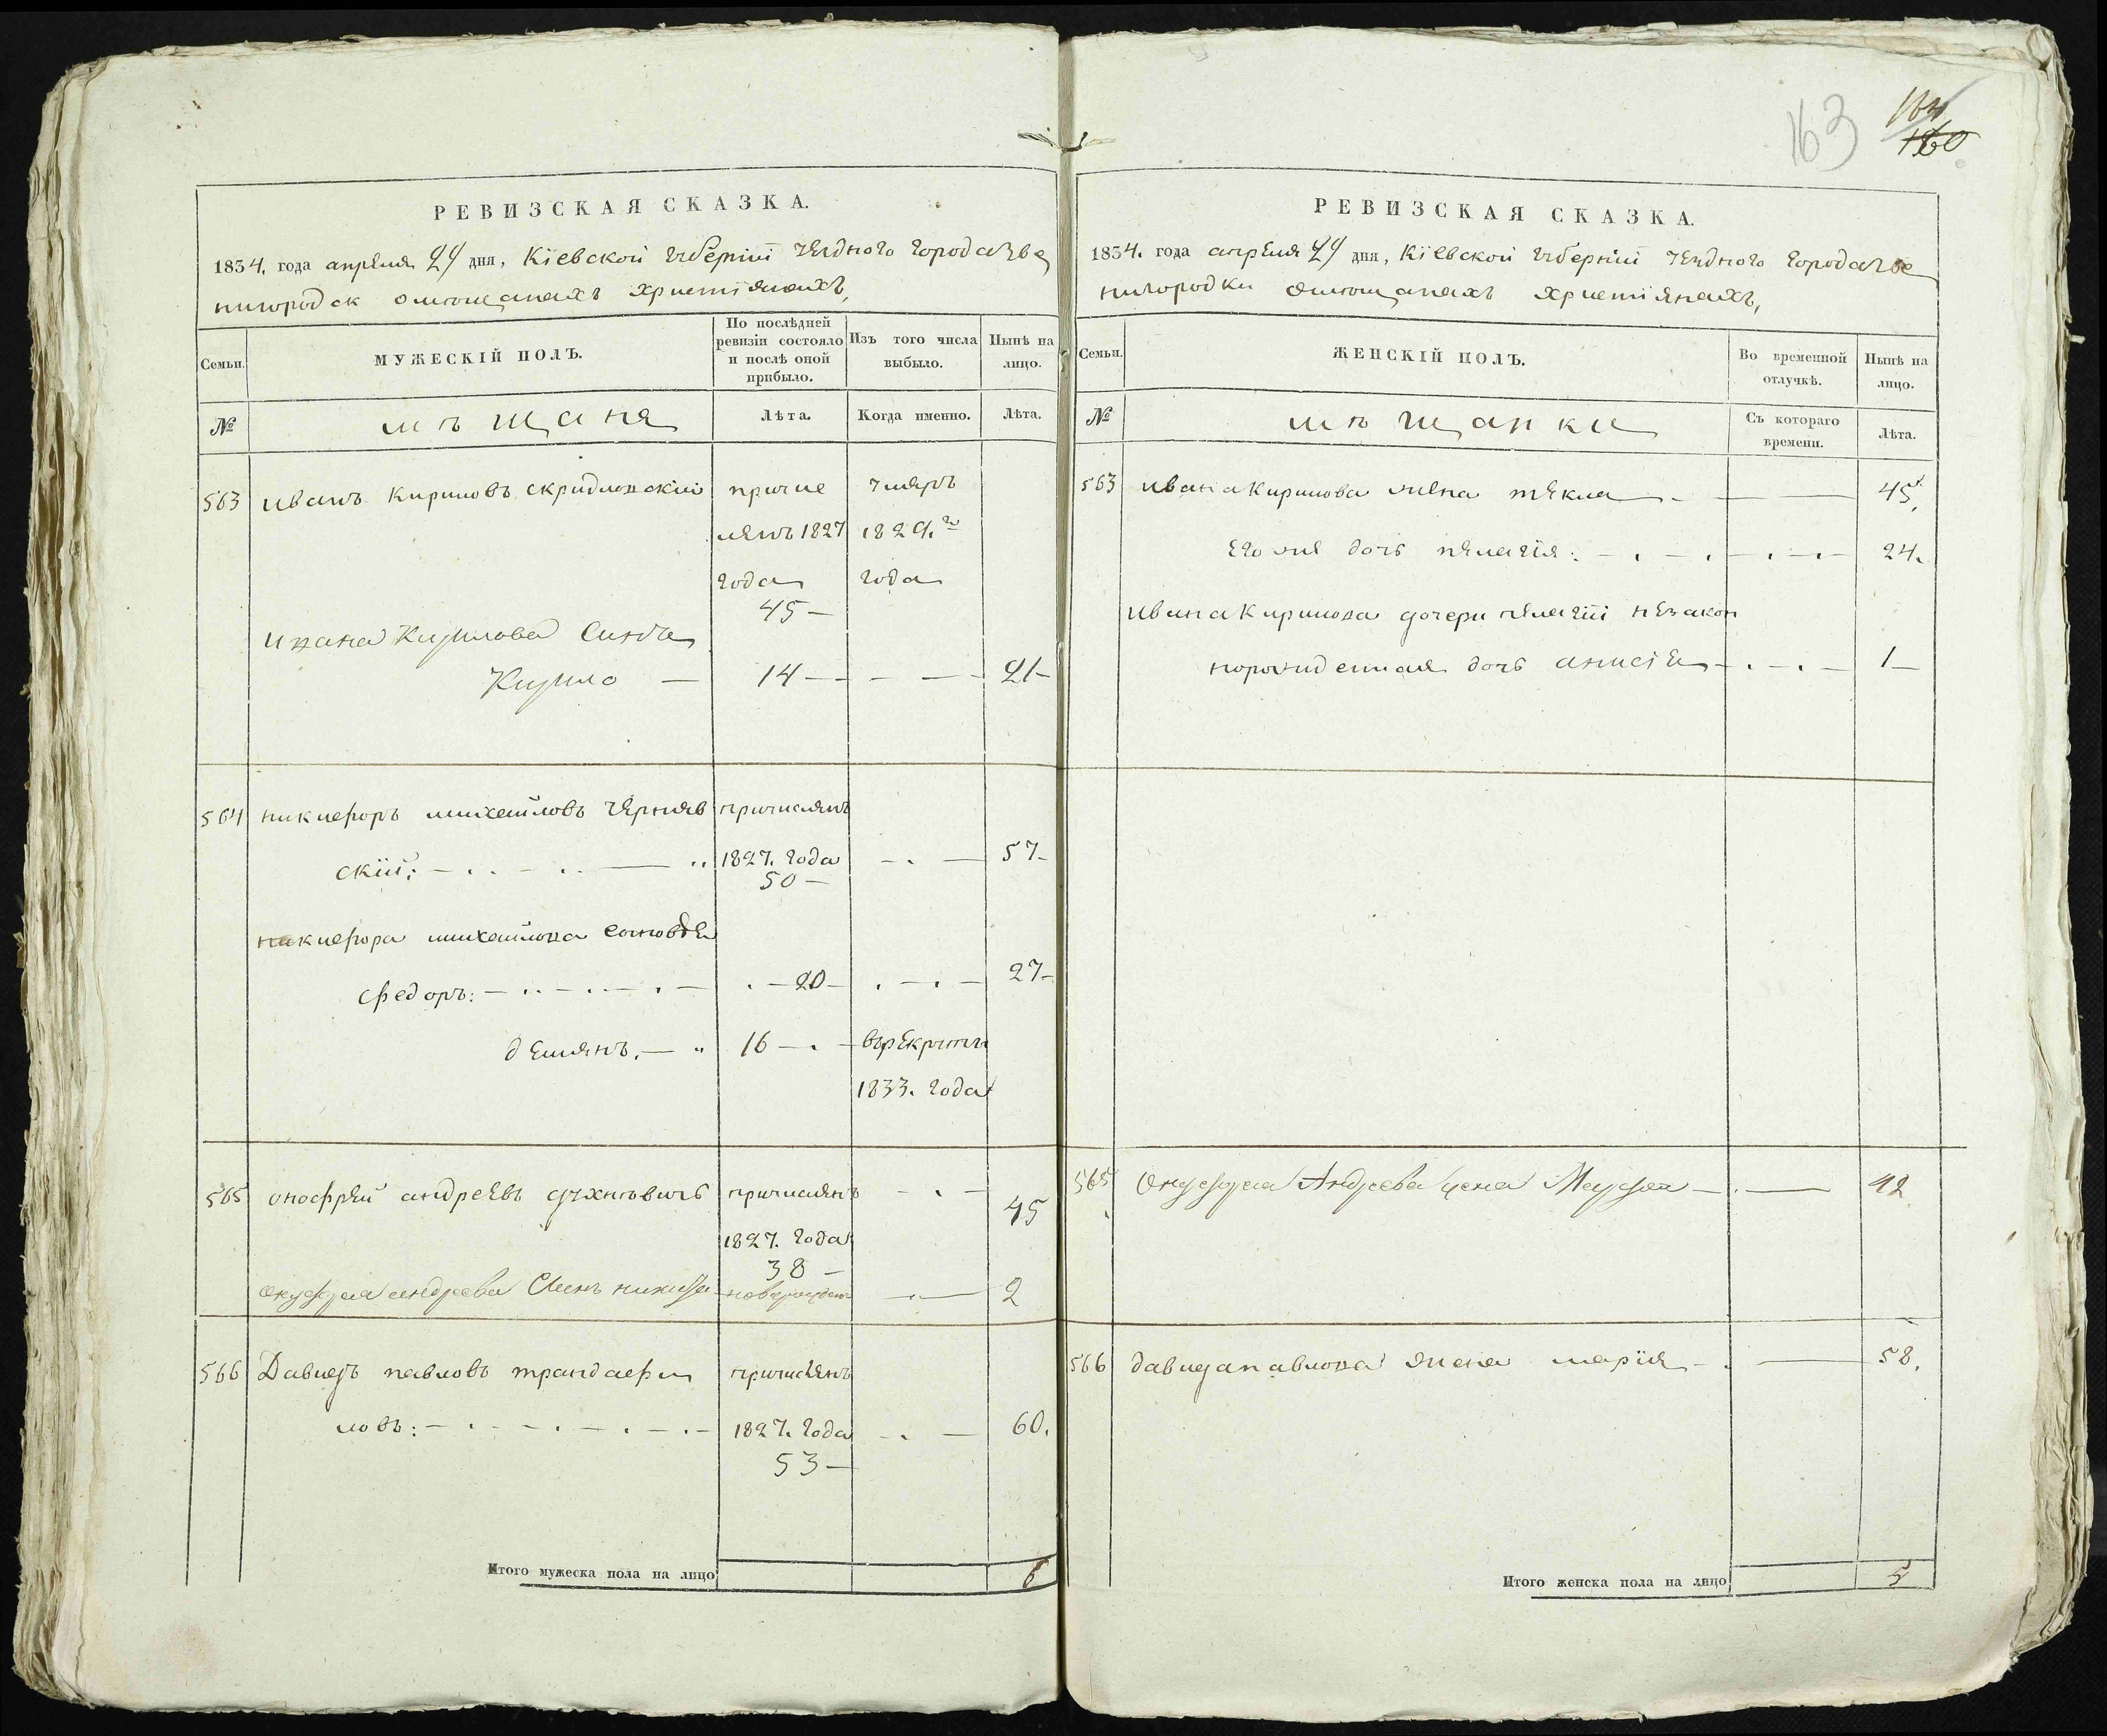 163
160
РЕВИЗСКАЯ СКАЗКА.
1834. года апреля 24 дня, Кіевской губерніи уезднаго города Зве
нигородк о мещанахъ христіянахъ,
Семьи.
МУЖЕСКІЙ ПОЛЪ.
По послѣдней ревизіи состояло и послѣ оной прибыло.
Изъ того числа выбыло.
Нынѣ на лицо.
№
мѣщаня
Лѣта.
Когда именно.
Лѣта.
563 иванъ Кириловъ скридловскій причис умеръ
ленъ 1827 1829. го
года года
45 —
ивана Кирилова Синъ
Кирило — 14 — — — 21 —
564 никифоръ михайловъ черняв причисленъ
скій: 1827. года 57 —
50 —
никифора михайлова сыновъе
федоръ: — 20 — 27 —
демянъ. — 16 — въ рекруты
1833. года
565 онофрей андреевъ духновичъ причисленъ 45
1827. года
38 —
онуфрия андреева Синъ никита новорожденъ — 2
566 Давидъ павловъ трандафи причисленъ
ловъ: 1827. года 60.
53 —
Итого мужеска пола на лицо 6
РЕВИЗСКАЯ СКАЗКА.
1834. года апреля 24 дня, Кіевской губерніи уезднаго города Зве
нигородки о мещанахъ христіянахъ,
Семьи.
ЖЕНСКІЙ ПОЛЪ.
Во временной отлучкѣ.
Нынѣ на лицо.
№
мѣщанки
Съ котораго времени.
Лѣта.
563 ивана Кирилова жена текла — 45.
его же дочь пелагія: — 24.
ивана Кирилова дочери пелагіи незакон
норожденная дочь анисія — 1 —
565 Онуфрия Андреева жена Марфа — 42
566 давида павлова жена марія — 58.
Итого женска пола на лицо 5